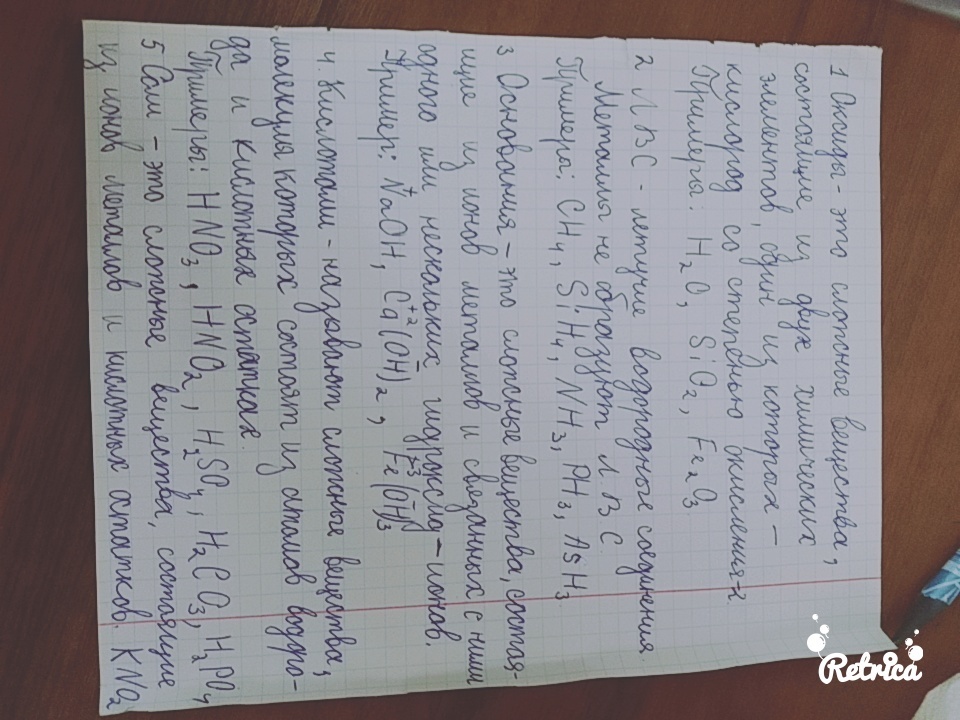 1 Оксиды - это сложные вещества,
состоящие из двух химических
элементов, один из которых -
кислород со степенью окисления -2.
Примеры: H2O, SiO2, Fe2O3
2 ЛВС - летучие водородные соединения.
Металлы не образуют ЛВС.
Примеры: CH4, SiH4, NH3, PH3, AsH3
3 Основания - это сложные вещества, состоя-
щие из ионов металлов и связанных с ними
одного или нескольких гидроксид - ионов.
Пример: Na+OH-, Ca+2(OH-)2, Fe+3(OH-)3
4. Кислотами - называют сложные вещества,
молекулы которых состоят из атомов водоро-
да и кислотных остатках
Примеры: HNO3, HNO2, H2SO4, H2CO3, H2PO4
5 Соли - это сложные вещества, состоящие
из ионов металлов и кислотных остатков. KNO2
Retrica